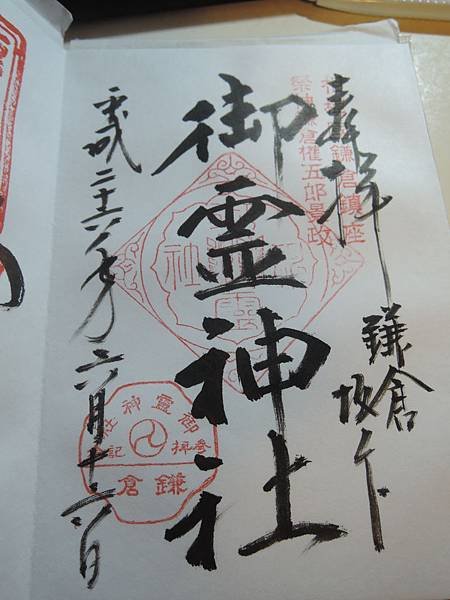 奉拝
鎌倉鎮座
祭神鎌倉権五郎景政
鎌倉
坂ノ下
御霊神社
平成二十六年六月十六日
御靈神社
参拝記念
鎌倉